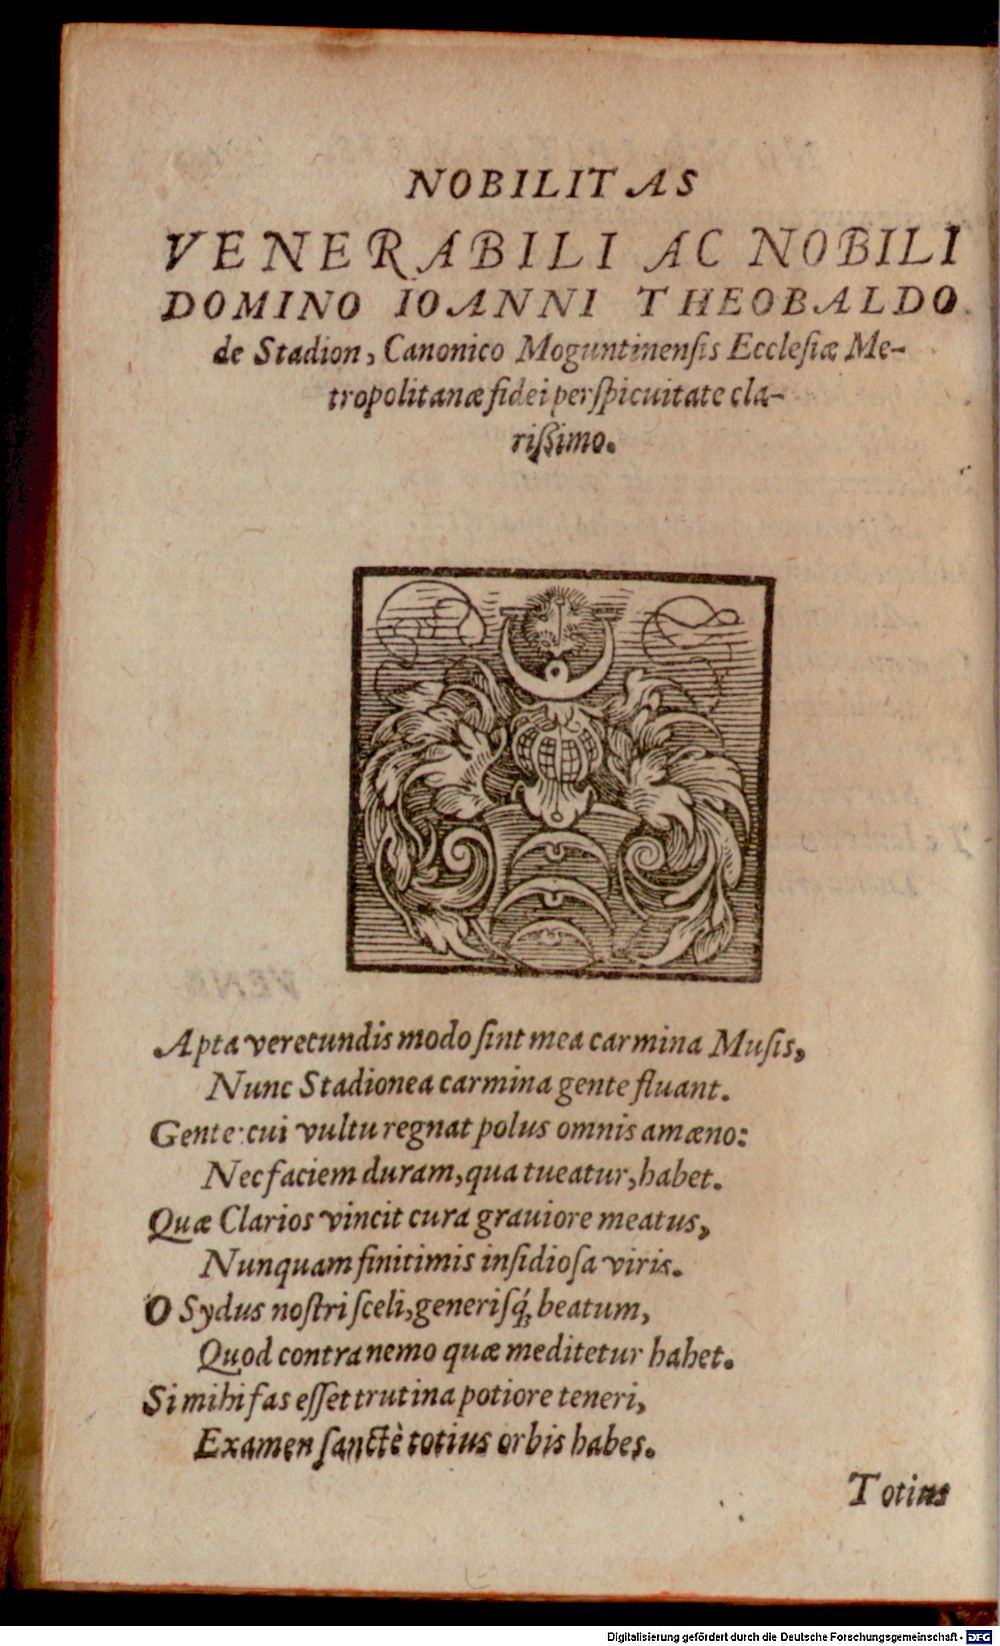 NOBILITAS
VENERABILI AC NOBILI
DOMINO IOANNI THEOBALDO
de Stadion, Canonico Moguntinensis Ecclesiæ Me-
tropolitanæ fidei perspicuitate cla-
rißimo.
Apta verecundis modo sint mea carmina Musis,
Nunc Stadionea carmina gente fluant.
Gente: cui vultu regnat polus omnis amæno:
Nec faciem duram, qua tueatur, habet.
Quæ Clarios vincit cura grauiore meatus,
Nunquam finitimis insidiosa viris.
O Sydus nostri sceli, generisq́; beatum,
Quod contra nemo quæ meditetur habet.
Si mihi fas esset trutina potiore teneri,
Examen sanctè totius orbis habes.
Totius
Digitalisierung gefördert durch die Deutsche Forschungsgemeinschaft - DFG